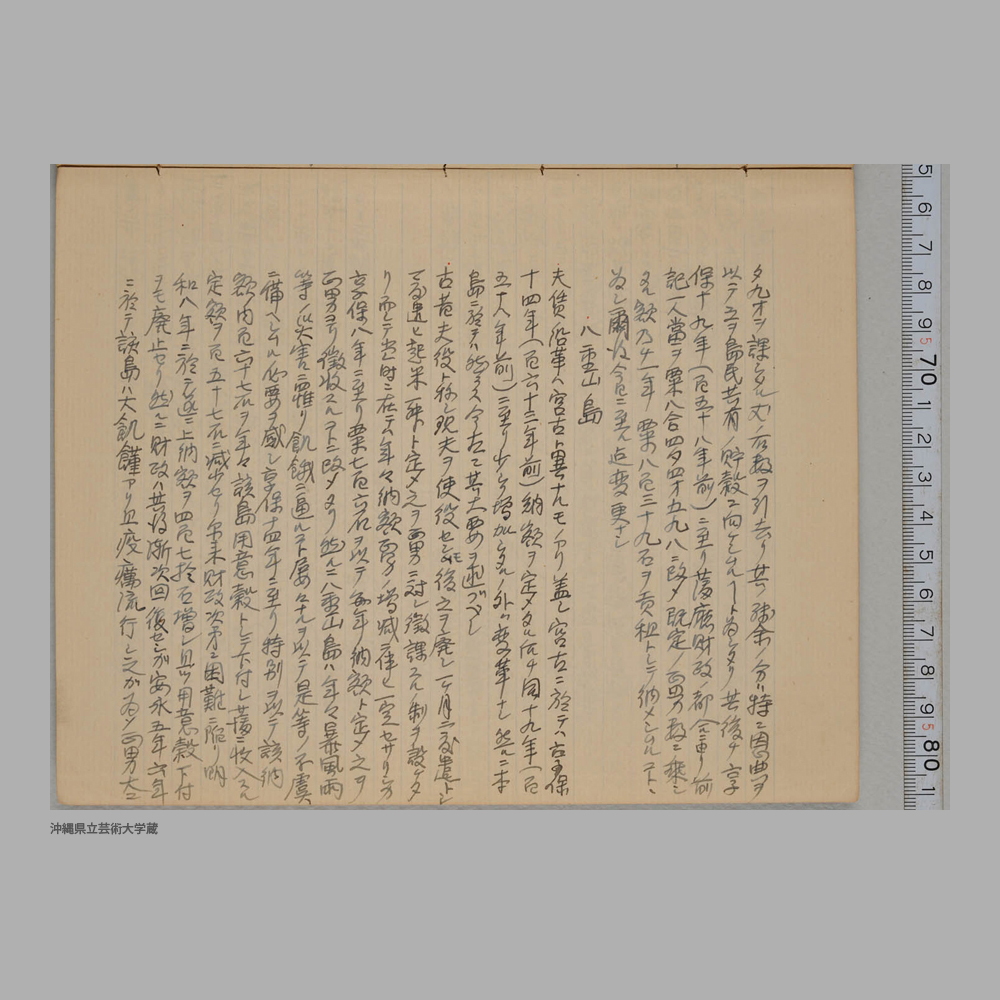 タ九才ヲ課シタル丈ノ石数ヲ引去リ其ノ残余ノ分ハ特ニ恩典ヲ
以テ之ヲ島民共有ノ貯穀ニ向ケシムルコトヽ為シタリ其後チ享
保十九年(百五十八年前)ニ至リ藩庁財政ノ都合ニ由リ前
記一人當ヲ粟八合四夕四才五九八ニ改メ既定ノ正男ノ数ニ乗シ
タル額乃チ一年ノ粟八百三十九石ヲ貢租トシテ納メシムルコトヽ
為シ爾後今日ニ至ル迄変更ナシ
八重山島
夫賃ノ沿革ハ宮古ト異ナルモノアリ蓋シ宮古ニ於テハ古享保
十四年(百六十三年前)納額ヲ定メタル后チ同十九年(百
五十八年前)ニ至リ少シク増加シタルノ外ハ変革ナシ然ルニ本
島ニ於テハ然ラス今左ニ其大要ヲ述ブベシ
古昔夫役ト称シ現夫ヲ使役セシモ後之ヲ廃シ一ヶ月二度遣トシ
一度遣ヒ起米一升ト定メ之ヲ正男ニ対シ徴課スル制ヲ設ケタ
リ而シテ当時ニ在テハ年々納額正男ノ増減ニ従ヒ一定セサリシカ
享保八年ニ至リ粟七百六石ヲ以テ毎年ノ納額ト定メ之ヲ
正男ヨリ徴収スルコトニ改メタリ然ルニ八重山島ハ年々暴風雨
等ノ災害ニ罹リ飢餓ニ逼ルコト屡々ナルヲ以テ是等ノ不虞
ニ備ヘシムル必要ヲ感シ享保十四年ニ至リ特別ヲ以テ該納
額ノ内百六十七石ヲ年々該島用意穀トシテ下付シ藩ニ収入スル
定額ヲ百五十七石ニ減少セリ尓来財政次第ニ困難ニ陥リ明
和八年ニ於テ返テ上納額ヲ四百七拾石増シ且ツ用意穀下付
ヲモ廃止セリ然ルニ財政ハ其後漸次回復セシガ安永五年六年
ニ於テ該島ハ大飢饉アリ且疫癘流行シ之カ為メ正男大ニ
5 6 7 8 9 70 1 2 3 4 5 6 7 8 9 80 1
沖縄県立芸術大学蔵